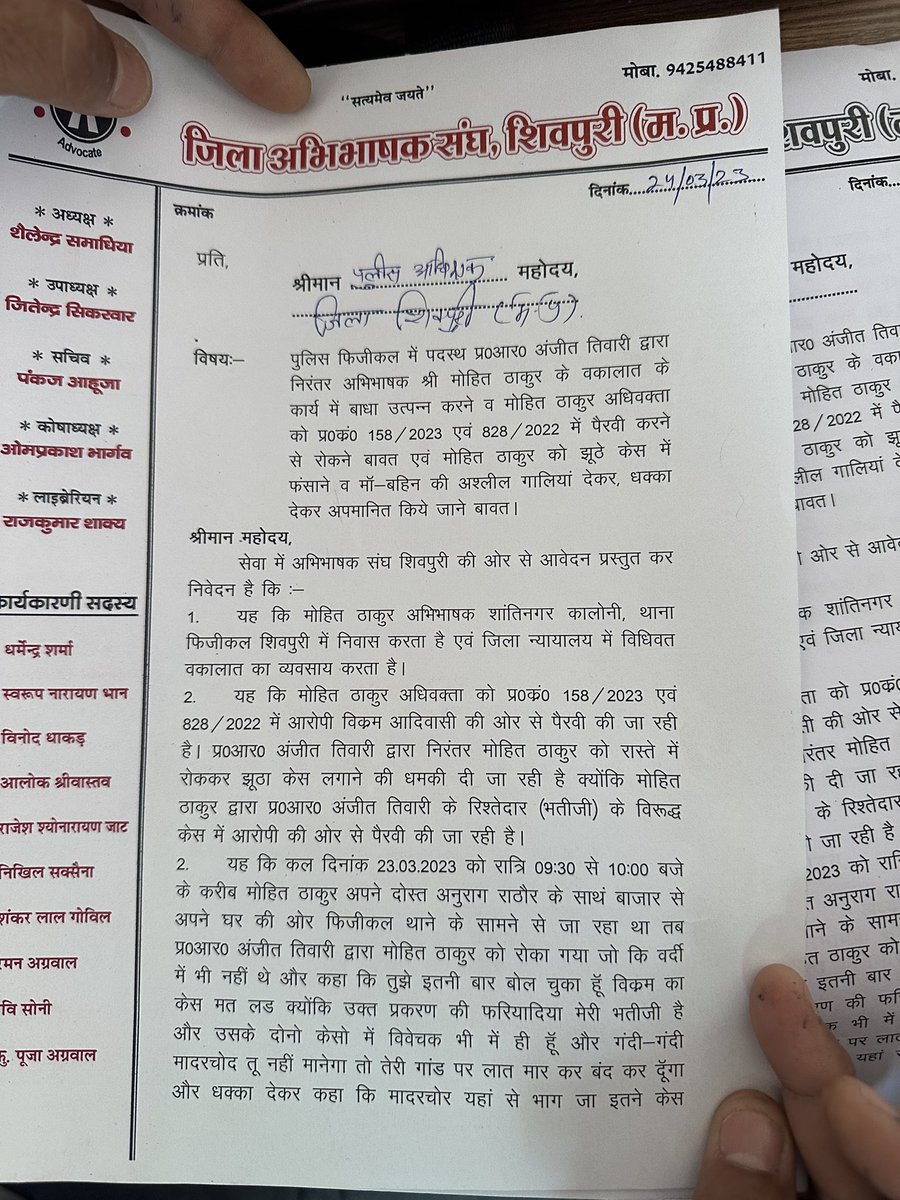 "सत्यमेव जयते"
मोबा. 9425488411
Advocate
जिला अभिभाषक संघ, शिवपुरी (म. प्र.)
क्रमांक
दिनांक....24/03/23
* अध्यक्ष *
शैलेन्द्र समाधिया
* उपाध्यक्ष *
जितेन्द्र सिकरवार
* सचिव *
पंकज आहूजा
* कोषाध्यक्ष *
ओमप्रकाश भार्गव
* लाइब्रेरियन *
राजकुमार शाक्य
कार्यकारणी सदस्य
धर्मेन्द्र शर्मा
स्वरूप नारायण भान
विनोद धाकड़
आलोक श्रीवास्तव
राजेश श्योनारायण जाट
निखिल सक्सैना
शंकर लाल गोविल
रमन अग्रवाल
वि सोनी
कु. पूजा अग्रवाल
प्रति,
श्रीमान पुलीस अधिक्षक महोदय,
जिला शिवपुरी (म.प्र).
विषयः– पुलिस फिजीकल में पदस्थ प्र0आर0 अंजीत तिवारी द्वारा
निरंतर अभिभाषक श्री मोहित ठाकुर के वकालात के
कार्य में बाधा उत्पन्न करने व मोहित ठाकुर अधिवक्ता
को प्र0कं0 158/2023 एवं 828/2022 में पैरवी करने
से रोकने बावत एवं मोहित ठाकुर को झूठे केस में
फंसाने व मॉ–बहिन की अश्लील गालियां देकर, धक्का
देकर अपमानित किये जाने बावत।
श्रीमान महोदय,
सेवा में अभिभाषक संघ शिवपुरी की ओर से आवेदन प्रस्तुत कर
निवेदन है कि :–
1. यह कि मोहित ठाकुर अभिभाषक शांतिनगर कालोनी, थाना
फिजीकल शिवपुरी में निवास करता है एवं जिला न्यायालय में विधिवत
वकालात का व्यवसाय करता है।
2. यह कि मोहित ठाकुर अधिवक्ता को प्र0कं0 158/2023 एवं
828/2022 में आरोपी विक्रम आदिवासी की ओर से पैरवी की जा रही
है। प्र0आर0 अंजीत तिवारी द्वारा निरंतर मोहित ठाकुर को रास्ते में
रोककर झूठा केस लगाने की धमकी दी जा रही है क्योंकि मोहित
ठाकुर द्वारा प्र0आर0 अंजीत तिवारी के रिश्तेदार (भतीजी) के विरूद्ध
केस में आरोपी की ओर से पैरवी की जा रही है।
2. यह कि कल दिनांक 23.03.2023 को रात्रि 09:30 से 10:00 बजे
के करीब मोहित ठाकुर अपने दोस्त अनुराग राठौर के साथं बाजार से
अपने घर की ओर फिजीकल थाने के सामने से जा रहा था तब
प्र0आर0 अंजीत तिवारी द्वारा मोहित ठाकुर को रोका गया जो कि वर्दी
में भी नहीं थे और कहा कि तुझे इतनी बार बोल चुका हूॅ विक्रम का
केस मत लड क्योंकि उक्त प्रकरण की फरियादिया मेरी भतीजी है
और उसके दोनो केसो में विवेचक भी में ही हूॅ और गंदी–गंदी
मादरचोद तू नहीं मानेगा तो तेरी गांड पर लात मार कर बंद कर दूॅगा
और धक्का देकर कहा कि मादरचोर यहां से भाग जा इतने केस
मोबा.
शिवपुरी
दिनांक...
महोदय,